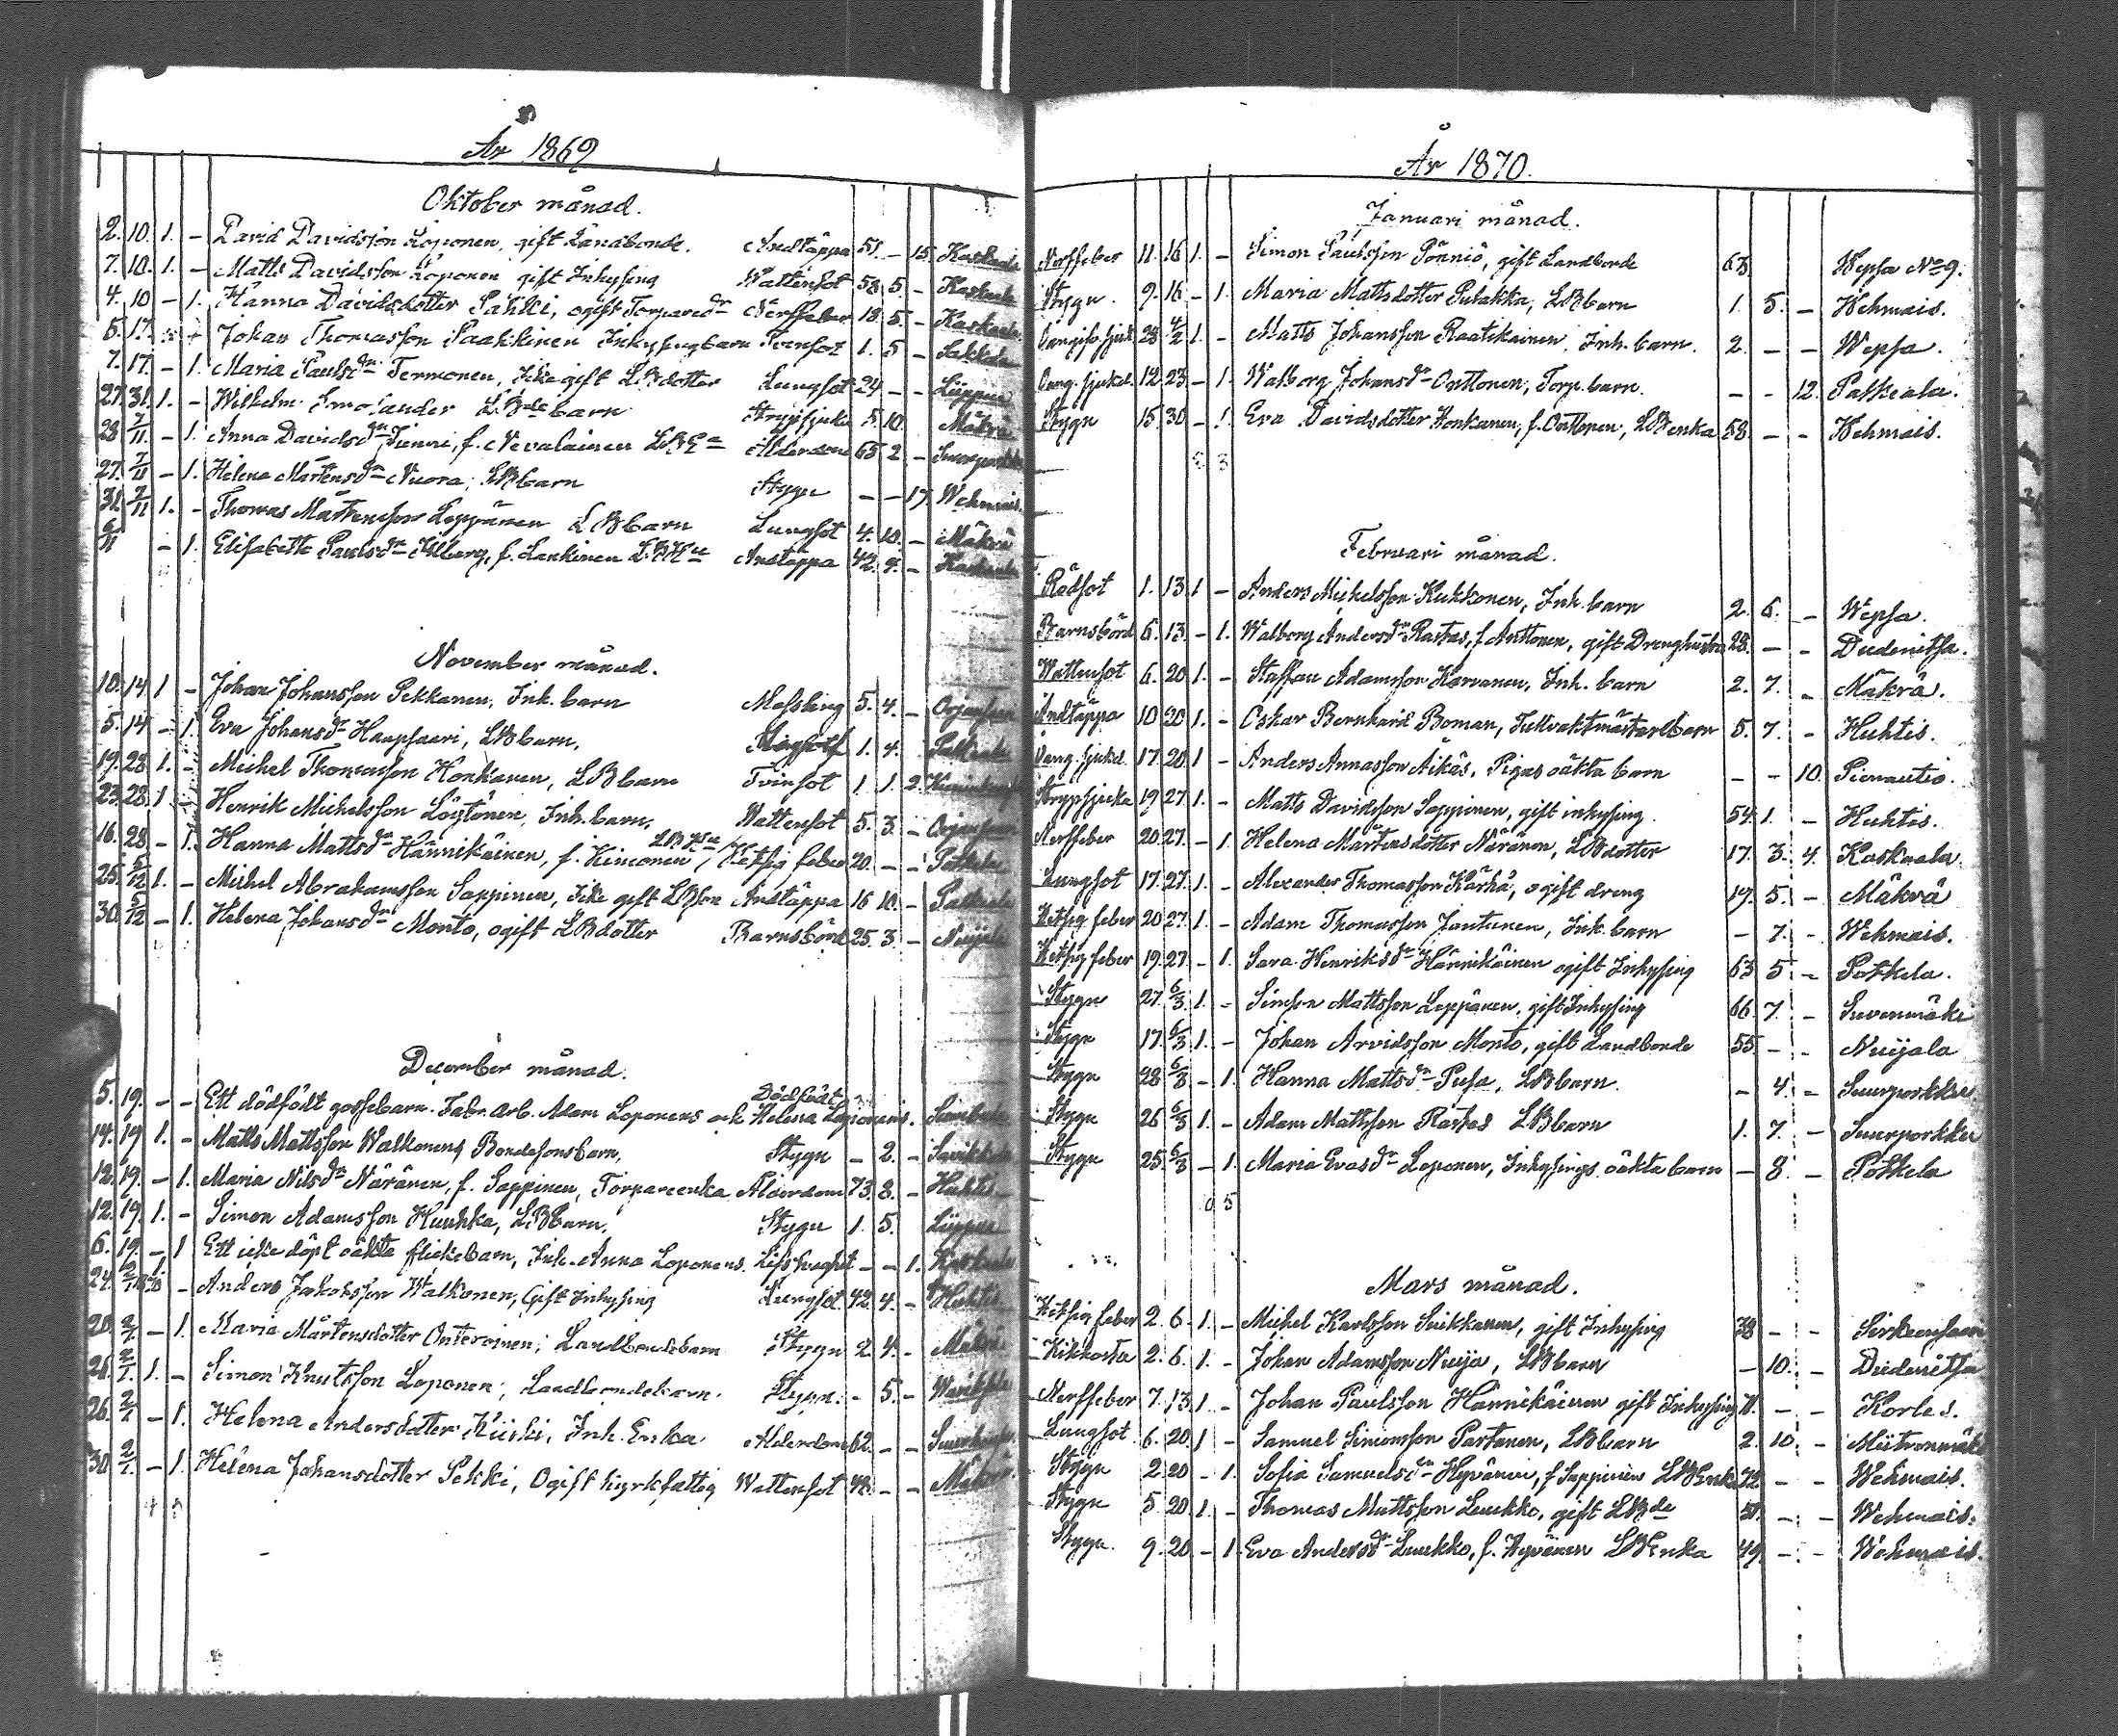 År 1869
Oktober månad.
2. 10. 1. - David Davidsson Loponen, gift Landbonde. Andtäppa 51. - 15. Kaskaala
7. 10. 1. - Matts Davidsson Loponen gift Inhysing Wattensot 58 5. - Kaskaala
4. 10 - 1. Hanna Davidsdotter Sahki, ogift Torparedr Nerffeber 18 5. - Kaskaala
5. 17. - Johan Thomasson Paakkinen Inhysingbarn Tvinsot 1. 5 - Sakkola
7. 17. - 1. Maria Paulsdr Termonen, Icke gift LBdotter Lungsot 24 - - Lüppua
27. 31. 1. - Wilhelm Smolander LBde barn Strypsjuka 5. 10. Mäkrä
28 7/11 - 1. Anna Davidsdr , f. Nevalainen LBEa Ålderdom 65 2 - Suurporkku
27. 7/11 - 1. Helena Mårtensdr Nuora, LBbarn Stygn - - 17. Wehmais.
31. 7/11 1. - Thomas Mattsson Leppänen LBbarn Lungsot 4. 10. - Mäkrä
6/11 - 1. Elisabeth Paulsdr Kilberg, f. Lankinen LBHu Andtäppa 42. 9. - Kaskaala
November månad.
10. 14. 1 - Johan Johansson Pekkanen, Inh. barn Messling 5. 4. -
5. 14 - 1. Eva Johansdr Haapsaari, LBbarn, 1. 4.
19. 28 1. - Michel Thomasson Honkanen, LBbarn Tvinsot 1 1. 2.
23. 28. 1 - Henrik Michelsson Löytönen, Inh. barn, Wattensot 5. 3. -
16. 28 - 1. Hanna Mattsdr Hännikäinen, f. Kimonen LBHu, Hetsig feber 20. - - Potkela
25. 5/12 1. - Michel Abrahamsson Sappinen, Icke gift LBson Andtäppa 16 10. -
30. 5/12 - 1. Helena Johansdr Monto, ogift LBdotter Barnsbörd 25. 3. - Nuijala
December månad.
5. 19. - - Ett dödfödt gossebarn. Fabr. arb. Adam Loponens och Helena Loponens. Dödfödt
14. 19 1. - Matts Mattsson Walkonens Bondesonsbarn, Stygn - 2. -
12. 19. - 1. Maria Nilsdr Näränen, f. Sappinen, Torpareenka Ålderdom 73. 8. - Huhtis
12. 19 1. - Simon Adamsson Huuhka, LBbarn. Stygn 1. 5. Lüppua
6. 19. - 1 Ett icke döpt oäkta flickebarn, Inh. Anna Loponens. - - 1. Kaskaala
24. 2/1 1870 1. - Anders Jakobsson Walkonen, Gift Inhysing Lungsot 42. 4. - Huhtis
20. 2/1. - 1. Maria Mårtensdotter Onteroinen; Landbondebarn Stygn 2. 4. - Mäkrä
26. 2/1. 1. - Simon Knutsson Loponen; Landbondebarn. Stygn. - 5. -
26. 2/1 - 1. Helena Andersdotter Kiiski, Inh. Enka Ålderdom 62. - -
30 2/1. - 1. Helena Johansdotter Pekki, Ogift kyrkfattig Wattensot 48. - - Mäkrä
År 1870.
Januari månad.
Nerffeber 11. 16 1. - Simon Paulsson Pönniö, gift Landbonde 63 Wepsa No 9.
Stygn. 9. 16 - 1. Maria Mattsdotter Pulakka, LBbarn 1. 5. - Wehmais.
28 4/2 1. - Matts Johansson Raatikainen, Inh. barn. 2. - - Wepsa.
Öang. sjukd. 12. 23 - 1. Walborg Johansdr Onttonen, Torp. barn. - - 12. Patkeala.
Stygn 15. 30 - 1. Eva Davidsdotter Honkanen, f. Onttonen, LBenka 58 - - Wehmais.
Februari månad.
Rödsot 1. 13. 1 - Anders Michelsson Kukkonen, Inh. barn 2. 6. - Wepsa.
Barnsbörd 6. 13. - 1. Walborg Andersdr Rastas, f. Anttonen, gift Drenghustru 28. - - Dudenitsa.
Wattensot 6. 20. 1. - Staffan Adamsson Karvanen, Inh. barn 2. 7. - Mäkrä.
Andtäppa 10 20 1. - Oskar Bernhard Boman, Tullvaktmästarebarn 5. 7. - Huhtis.
Öang. sjukd. 17. 20. 1 - Anders Annasson Äikäs, Pigas oäkta barn - - 10. Pienautio.
Strypsjuka 19 27. 1. - Matts Davidsson Sappinen, gift inhysing. 54. 1. - Huhtis.
Nerffeber 20 27. - 1. Helena Mårtensdotter Näränen, LBdotter 17. 3. 4. Kaskaala.
Lungsot 17. 27. 1. - Alexander Thomasson Kärhä, ogift dreng 19. 5. - Mäkrä
Hetsig feber 20 27. 1. - Adam Thomasson Jantunen, Inh. barn - 7. - Wehmais.
Hetsig feber 19. 27. - 1. Sara Henriksdr Hännikäinen ogift Inhysing 63 5 - Potkela.
Stygn 27. 6/3 1. - Simson Mattsson Leppänen, gift Inhysing 66. 7. - Suvenmäki
Stygn 17. 6/3 1. - Johan Arvidsson Monto, gift Landbonde 55. - - Nuijala
Stygn 28 6/3 - 1. Hanna Mattsdr Pusa, LBbarn. - 4. - Suurporkku.
Stygn 26 6/3 1. - Adam Mattsson Rastas LBbarn 1. 7. - Suurporkku
Stygn 25. 6/3 - 1. Maria Evasdr Loponen, Inhysings oäkta barn - 8. - Potkela
Mars månad.
Hetsig feber 2. 6. 1. - Michel Karlsson Suikkanen, gift Inhysing 38 - -
Kikhosta 2. 6. 1. - Johan Adamsson Nuija, LBbarn - 10. - Dudenitsa
Nerffeber 7. 13. 1 - Johan Paulsson Hännikäinen gift Inhysing 71. - - Korles.
Lungsot. 6. 20. 1 - Samuel Simonsson Partanen, LBbarn 2. 10. -
Stygn 2. 20 - 1. Sofia Samuelsdr Hyvänen, f. Sappinen LBEnka 72 - - Wehmais.
Stygn 5. 20. 1. - Thomas Mattsson Luukko, gift LBde 51. - - Wehmais.
Stygn. 9. 20. - 1. Eva Andersdr Luukko, f. Hyvänen LBEnka 49 - - Wehmais.